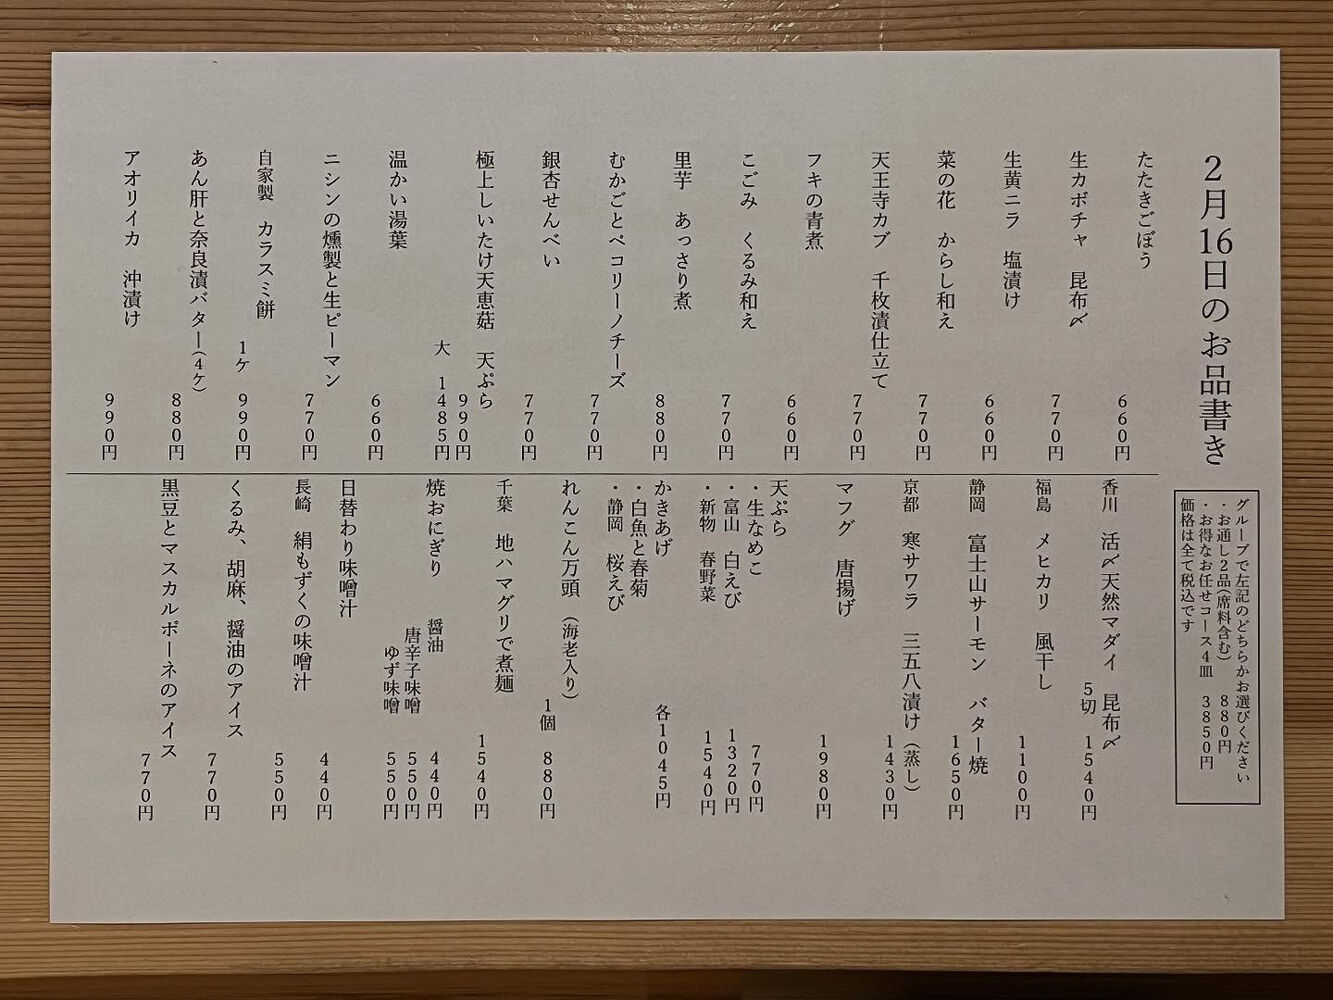 2月16日のお品書き
グループで左記のどちらかお選びください
・お通し2品(席料含む) 880円
・お得なお任せコース4皿 3850円
価格は全て税込です
たたきごぼう 660円
生カボチャ 昆布〆 770円
生黄ニラ 塩漬け 660円
菜の花 からし和え 770円
天王寺カブ 千枚漬仕立て 770円
フキの青煮 660円
こごみ くるみ和え 770円
里芋 あっさり煮 880円
むかごとペコリーノチーズ 770円
銀杏せんべい 770円
極上しいたけ天恵菇 天ぷら 990円
大 1485円
温かい湯葉 660円
ニシンの燻製と生ピーマン 770円
自家製 カラスミ餅 1ケ 990円
あん肝と奈良漬バター(4ケ) 880円
アオリイカ 沖漬け 990円
香川 活〆天然マダイ 昆布〆
5切 1540円
福島 メヒカリ 風干し 1100円
静岡 富士山サーモン バター焼 1650円
京都 寒サワラ 三五八漬け(蒸し) 1430円
マフグ 唐揚げ 1980円
天ぷら
・生なめこ 770円
・富山 白えび 1320円
・新物 春野菜 1540円
かきあげ 各1045円
・白魚と春菊
・静岡 桜えび
れんこん万頭(海老入り) 1個 880円
千葉 地ハマグリで煮麺 1540円
焼おにぎり 醤油 440円
唐辛子味噌 550円
ゆず味噌 550円
日替わり味噌汁 440円
長崎 絹もずくの味噌汁 550円
くるみ、胡麻、醤油のアイス 770円
黒豆とマスカルポーネのアイス 770円